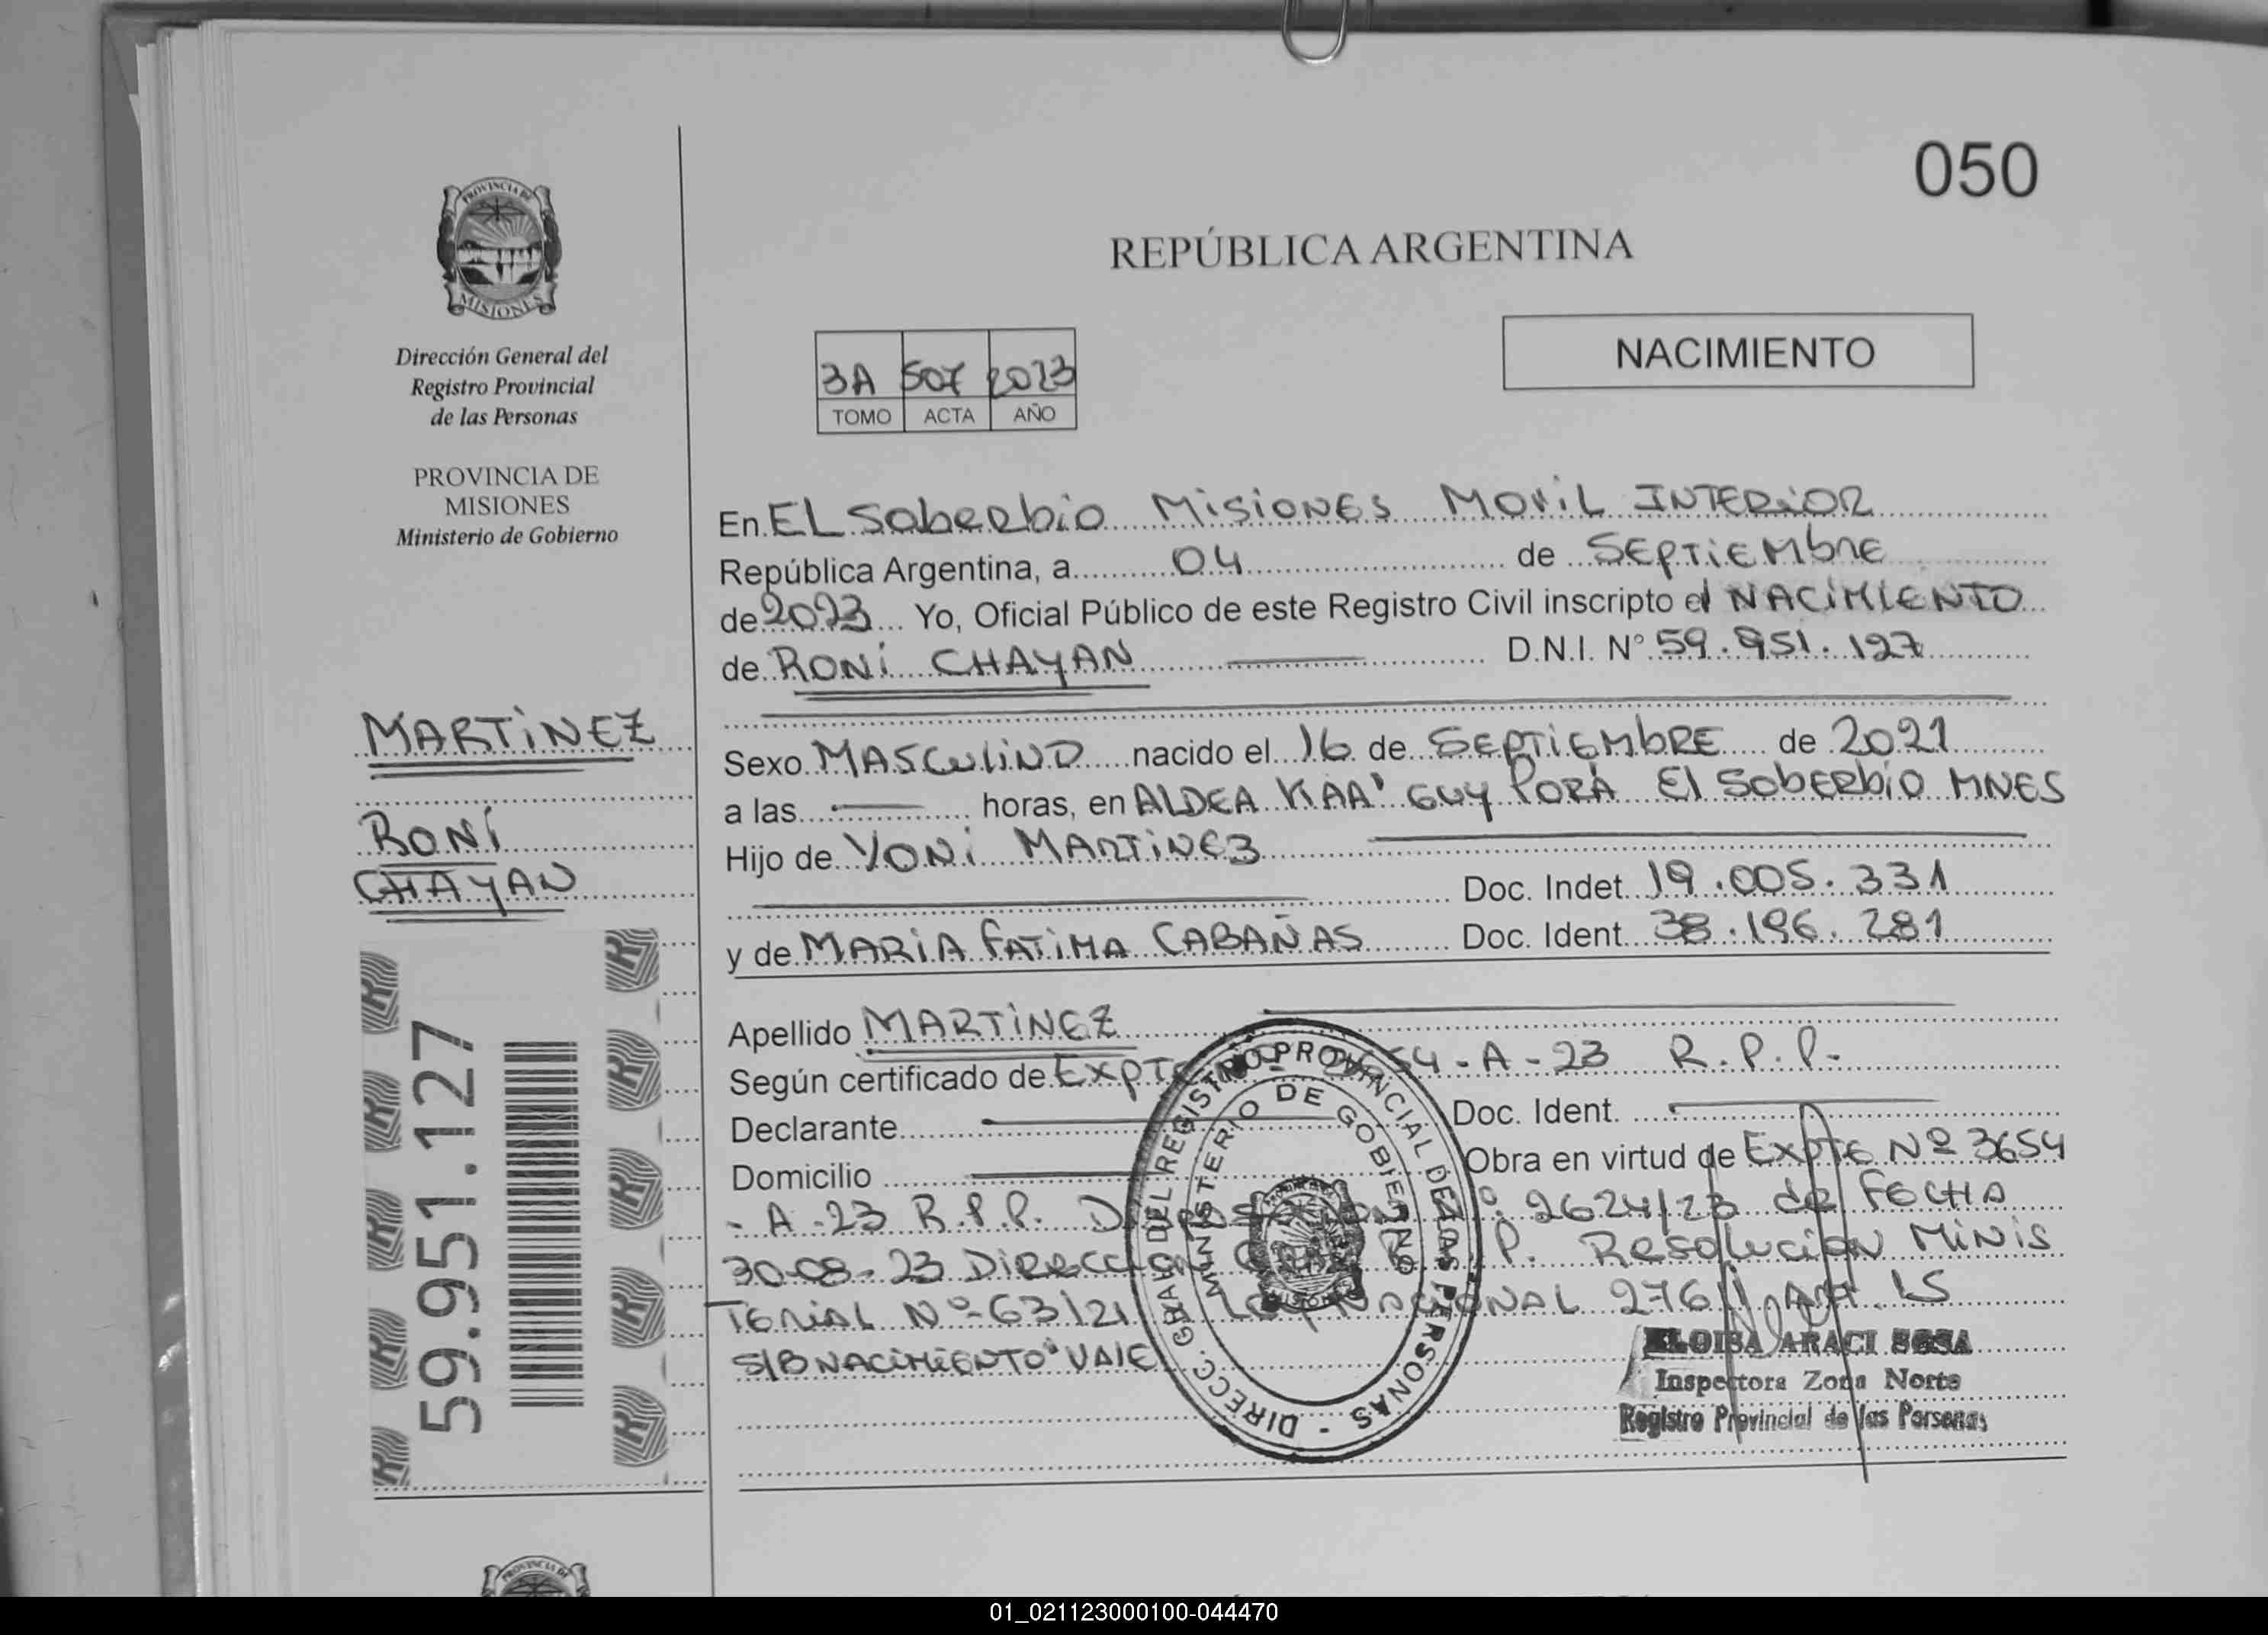 050
PROVINCIA DE
MISIONES
Dirección General del
Registro Provincial
de las Personas
PROVINCIA DE
MISIONES
Ministerio de Gobierno
MARTINEZ
RONI
CHAYAN
59.951.127
REPÚBLICA ARGENTINA
NACIMIENTO
3A 507 2023
TOMO ACTA AÑO
En EL Soberbio Misiones Movil INTERiOR
República Argentina, a 04 de SEPTiEMbRE
de 2023 Yo, Oficial Público de este Registro Civil inscripto el NACiMiENTO
de RONi CHAYAN D.N.I. N° 59.951.127
Sexo MASCuliNO nacido el 16 de SEPTiEMbRE de 2021
a las horas, en ALDEA KAA' GUY PORÀ El SobERbiO MNES
Hijo de YONi MARTiNEZ
Doc. Indet. 19.005.331
y de MARiA FATiMA CABAÑAS Doc. Ident. 38.196.281
Apellido MARTiNEZ
Según certificado de EXPTE 3654-A-23 R.P.P.-
Declarante Doc. Ident.
Domicilio Obra en virtud de EXPTE Nº 3654
- A-23 R.P.P. Disposicion Nº 2624/23 de FECHA
30-08-23 DiRECCion R.P.P. Resolucion MiNiS
TERiAL Nº-63/21 Ley NACiONAL 27611 Art. 15
S/B NACiMiENTO" VALE
DIRECC. GRAL. DEL REGISTRO PROVINCIAL DE LAS PERSONAS -
MINISTERIO DE GOBIERNO
ELOISA ARACI SOSA
Inspectora Zona Norte
Registro Provincial de las Personas
01_021123000100-044470